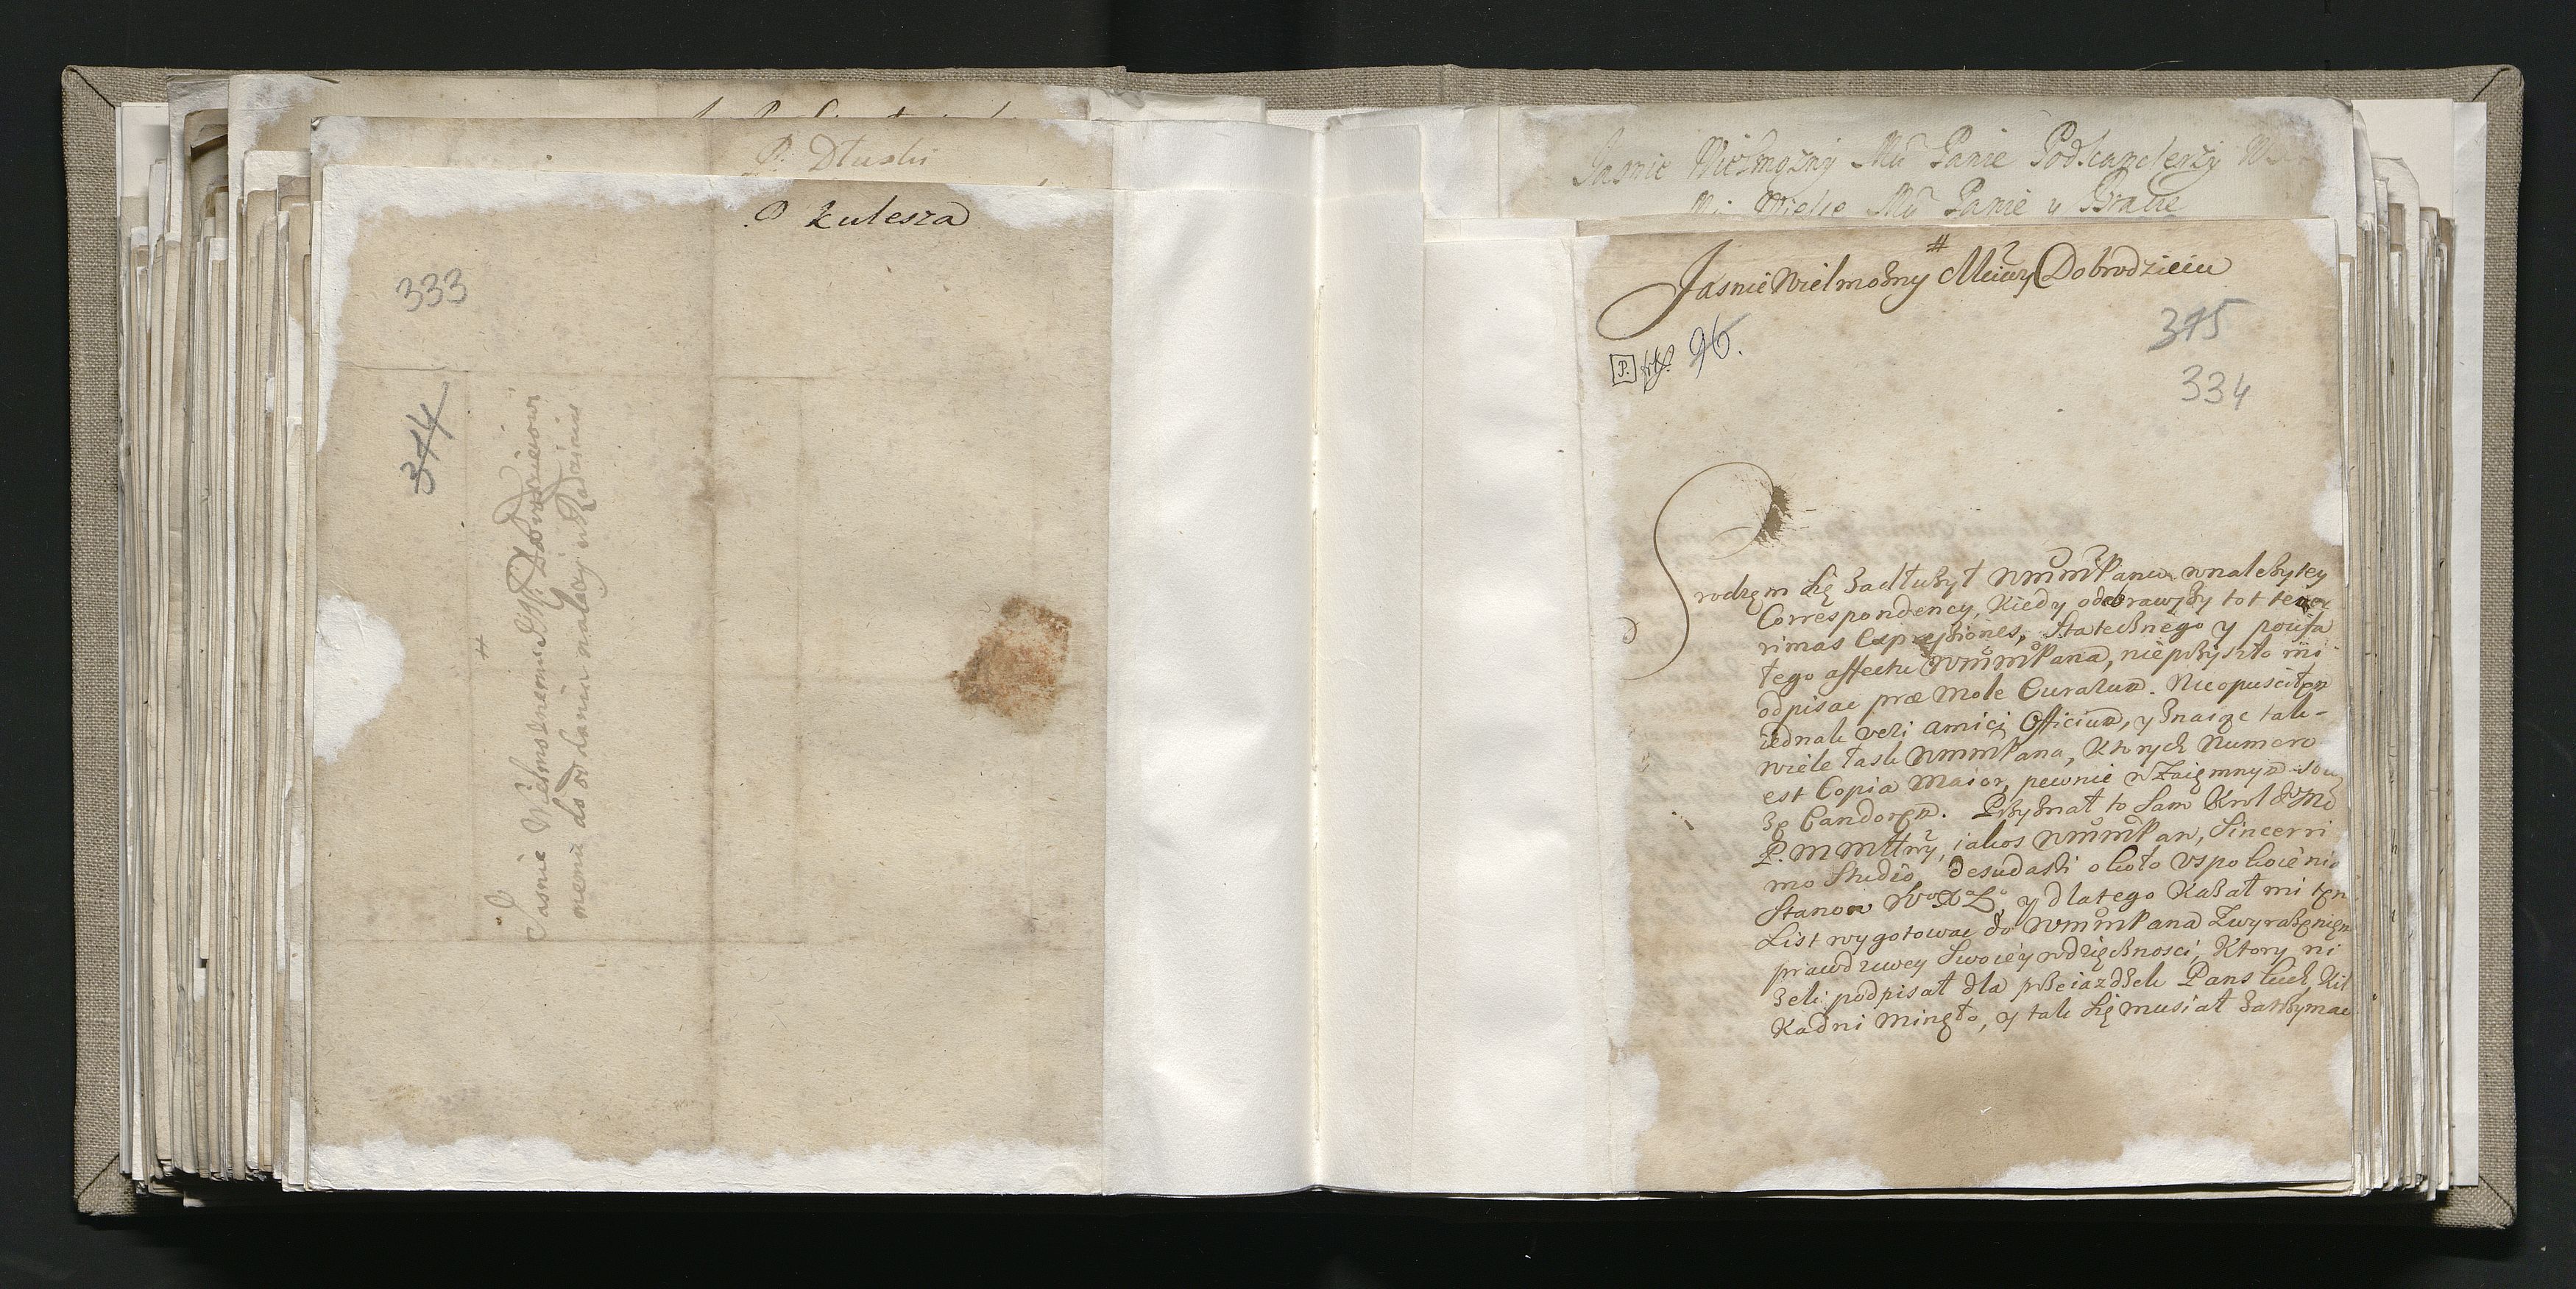 P. Dłuski
P Kulesza
333
374
#
Jasnie Wielmożnemu
menu do oddania należy w Radzinie
Jasnie Wielmożny Mci Panie Podkanclerzy
Wielce Mci Panie y Bracie
#
Jasnie Wielmożny Mciwy Dobrodzieiu
P. 96.
375
334
Srodzem się zadłużył WMMPanu w należytey
Correspondency, Kiedy odebrawszy tot tener
rimas Expressiones, Statecznego y poufa
tego affectu WMMPana, nieprzyszło mi
odpisac præ mole Curarum. Nieopuscilem
iednak veri amici Officium, y znaiąc tak-
wiele łask WMMPana, Ktorych Numero
est Copia Maior, pewnie wzaiemnym
ze Candorem. Przyznał to sam Krol JeMo
P. M Mttwy, iakos WMMPan, Sincerri
mo Studio, desudasti około uspokoienia
Stanow W X L, y dlatego Kazał mi ten
List wygotowac do WMMPana Zwyrażeniem
prawdziwey Swoiey wdzięcznosci, Ktory ni
zeli podpisał dla przeiazdzek Panskich, Kil
Kadni Minęło, y tak się musiał zatrzymac